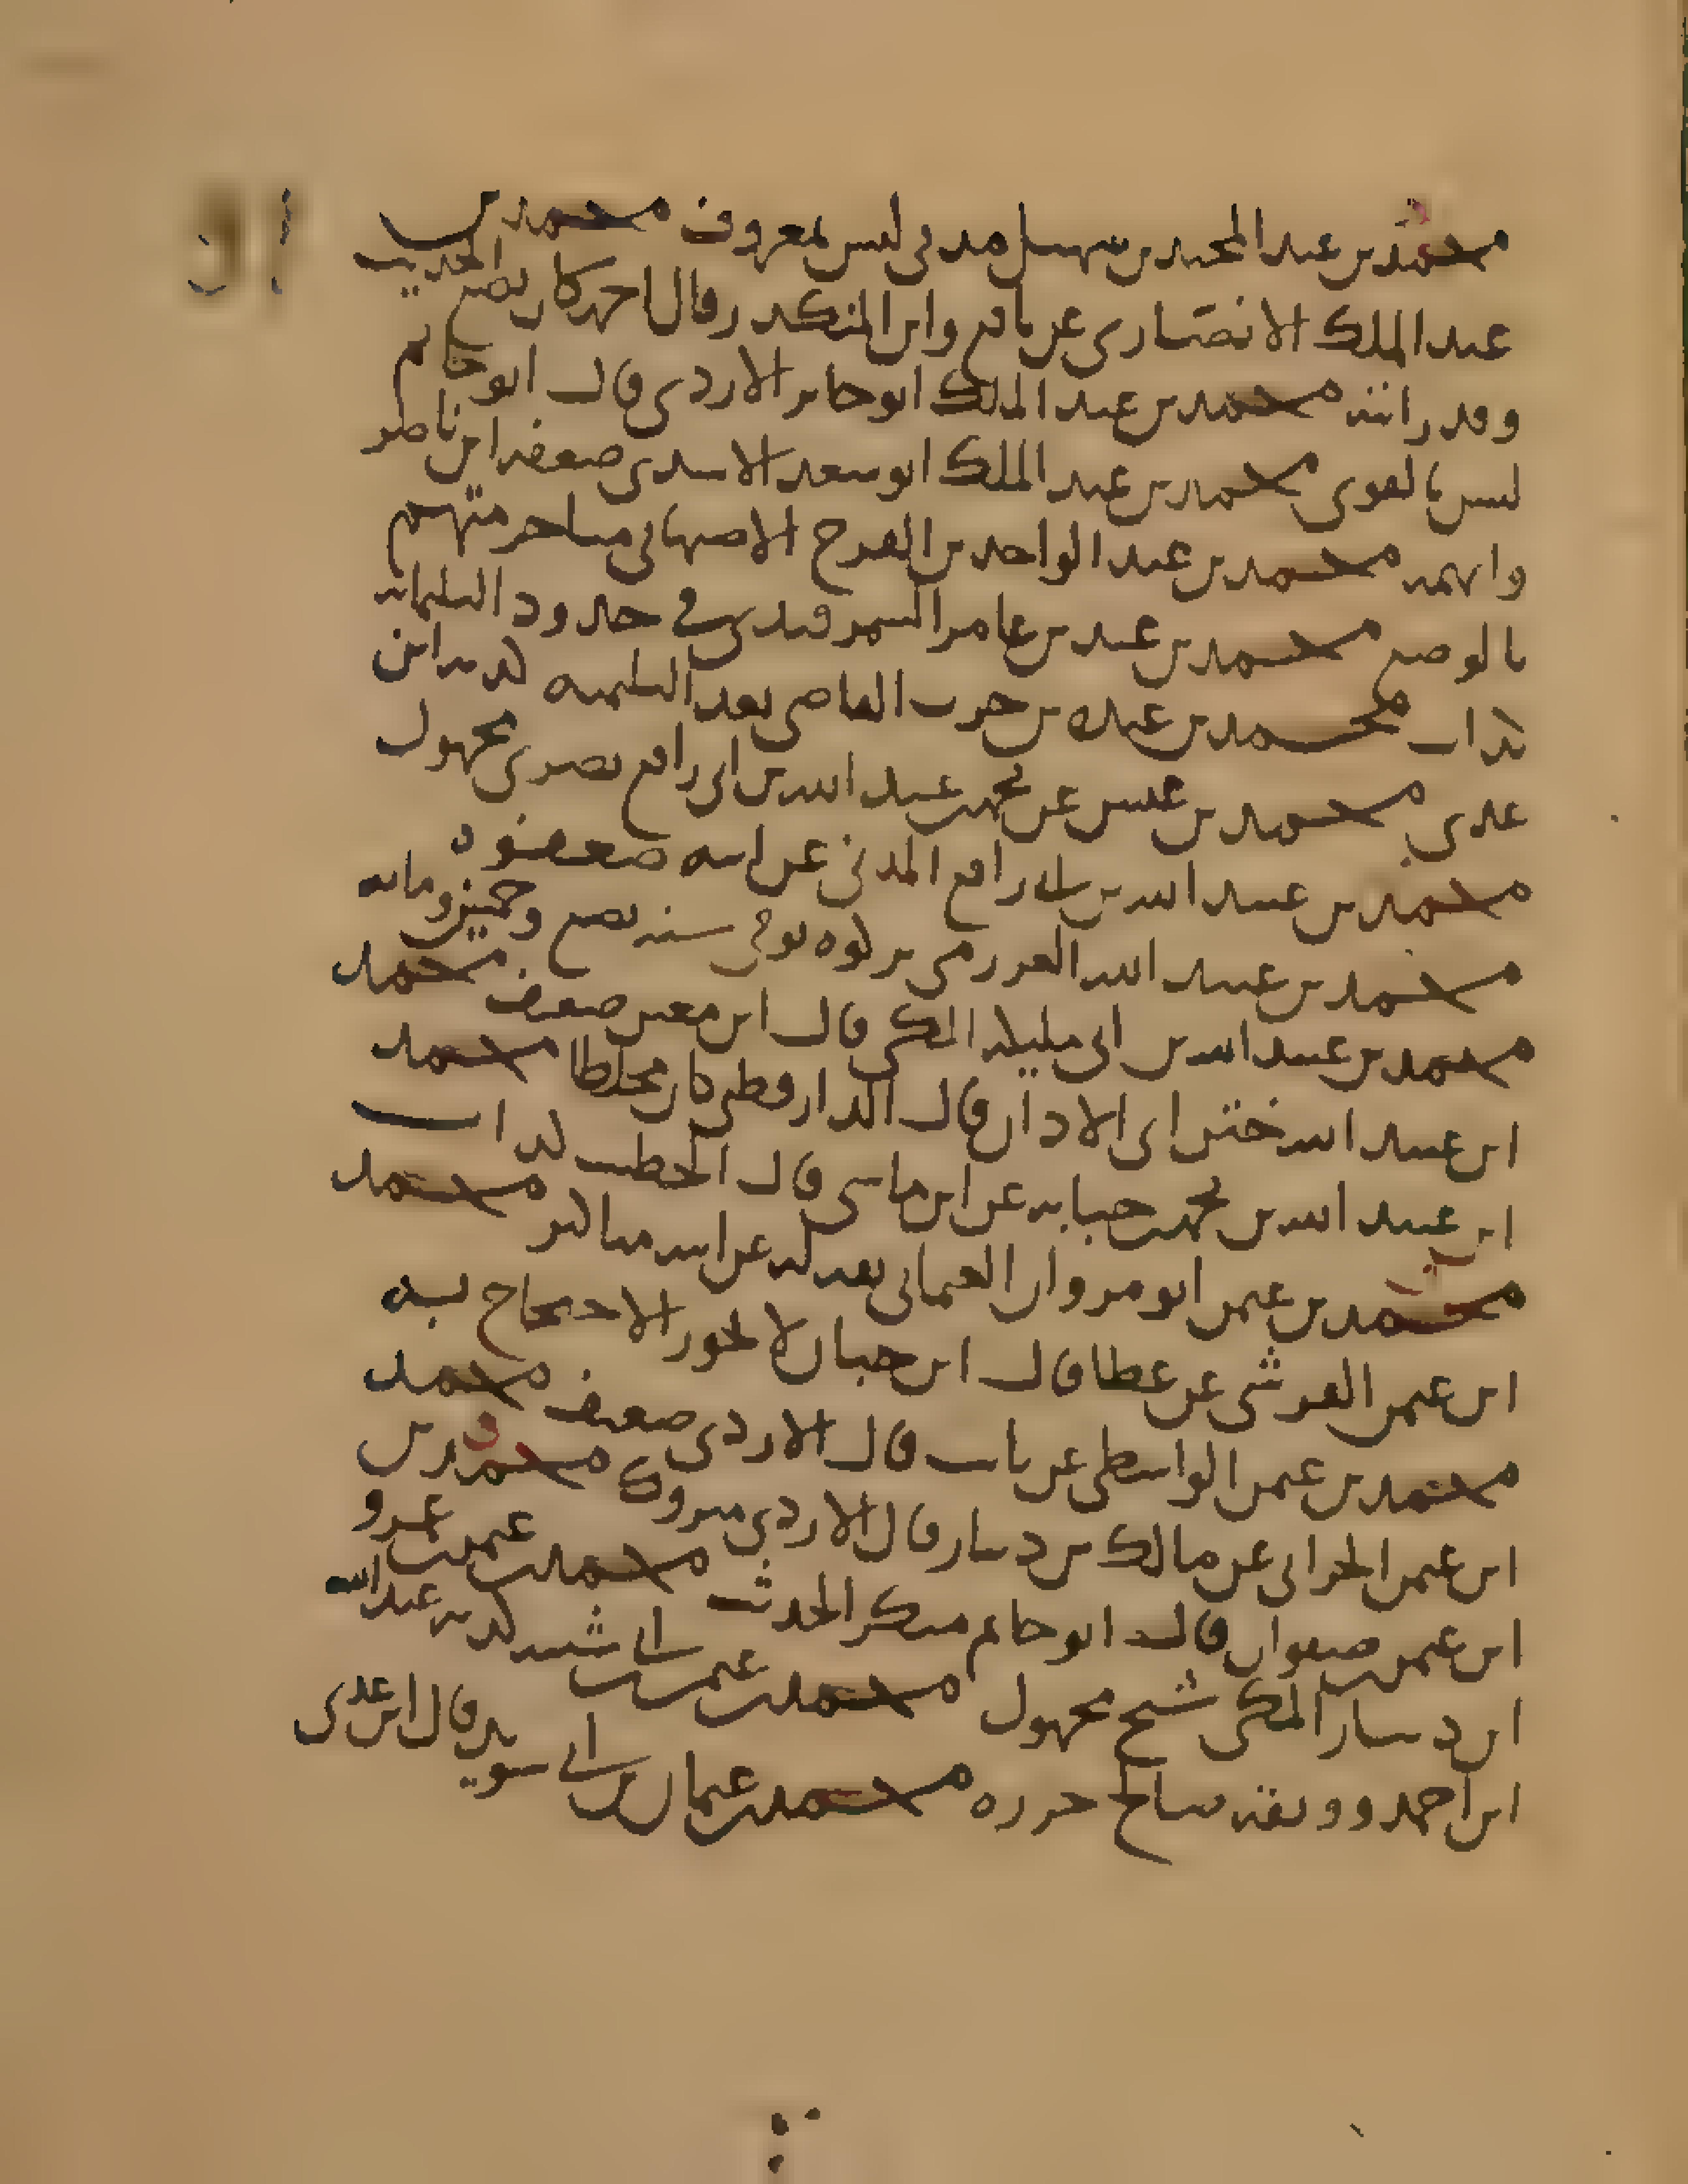 محمد بن عبد المجيد بن سهيل مدني ليس بمعروف محمد بن
عبد الملك الانصاري عن نافع وابن المنكدر قال احمد كان يضع الحديث
وقد رايته محمد بن عبد الملك ابو جابر الازدي قال ابو حاتم
ليس بالقوي محمد بن عبد الملك ابو سعد الاسدي ضعفه ابن ناصر
واتهمه محمد بن عبد الواحد بن الفرج الاصبهاني متاخر متهم
بالوضع محمد بن عبد بن عامر السمرقندي في حدود الثلثمائة
كذاب محمد بن عبدة بن حرب القاضي بعد الثلثمية كذبه ابن
عدي محمد بن عبس عن محمد بن عبيد الله بن ابي رافع بصري مجهول
محمد بن عبيد الله بن ابي رافع المدني عن ابيه ضعفوه
محمد بن عبيد الله العرزمي تركوه توفي سنة بضع وخمسين ومائة
محمد بن عبيد الله بن ابي مليكة المكي قال ابن معين ضعيف محمد
ابن عبيد الله ختن ابي الاذان قال الدارقطني كان مخلطا محمد
ابن عبيد الله بن محمد بن حبابة عن ابن ماسي قال الخطيب كذاب
محمد بن عثمن ابو مروان العثماني ثقة له عن ابيه مناكير محمد
ابن عثمن القرشي عن عطا قال ابن حبان لا يجوز الاحتجاج به
محمد بن عثمن الواسطي عن ثابت قال الازدي ضعيف محمد
ابن عثمن الحراني عن مالك بن دينار قال الازدي متروك محمد بن
ابن عثمن بن صفوان قال ابو حاتم منكر الحديث محمد بن عثمن بن عمرو
ابن دينار المكي شيخ مجهول محمد بن عثمن بن ابي شيبة كذبه عبد الله
ابن احمد ووثقه صالح جزرة محمد بن عثمان بن ابي سويد قال ابن عدي